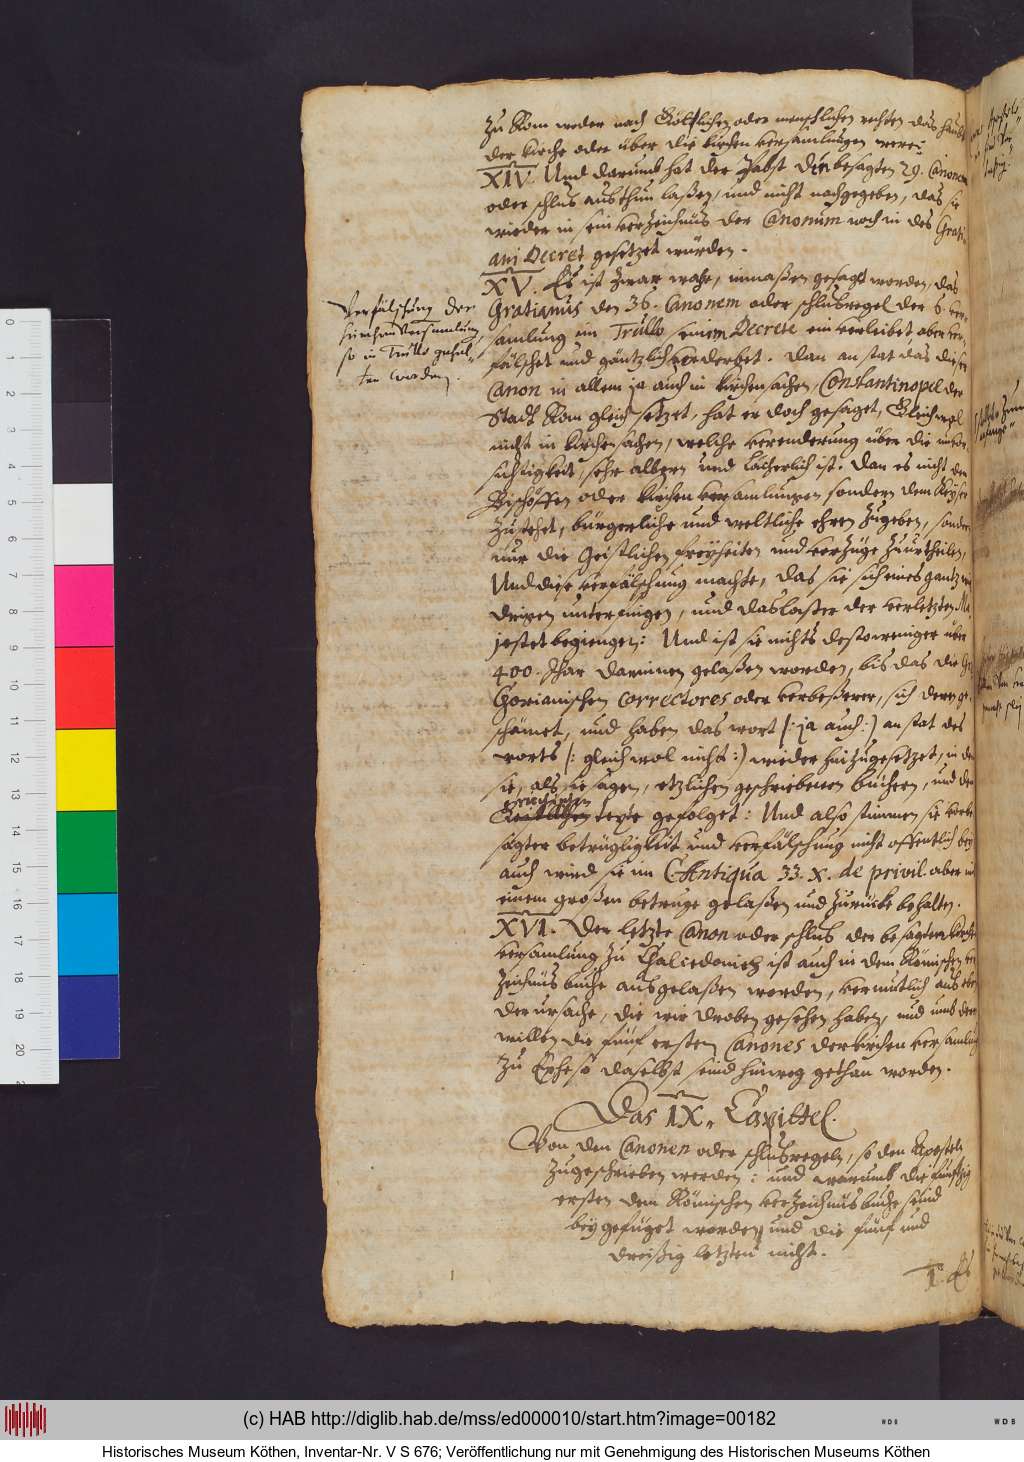 zu Rom weder nach Göttlichen oder menschlichen rechten das haubt
der kirche oder über die kirchen versamlungen were:
XIV. Und darumb hat der Pabst den besagten 29. Canonem
oder schlus austhun laßen, und nicht nachgegeben, das sie
wieder in sein verzeichnüs der Canonum noch in des Grati-
ani Decret gesetzet würden.
XV. Es ist zwar wahr, inmaßen gesagt worden, das
Gratianus den 36. Canonem oder schlusregel der 6. ver-
samlung im Trullo seinem Decrete einverleibet aber ver-
fälschet und gäntzlich verderbet. Dan an stat das dieser
Canon in allem ja auch in kirchensachen, Constantinopel der
Stadt Rom gleich setzet, hat er doch gesaget, Gleichwol
nicht in kirchensachen, welche verenderung über die
sehr albern und lächerlich ist. Dan es nicht den
Bischöffen oder kirchen versamlungen sondern dem Keyser
zustehet, bürgerliche und weltliche ehren zugeben, sonder
nur die Geistlichen freyheiten und vorzüge zuurtheilen,
Und diese verfälschung machte, das sie sich eines gantz
dingen unterningen, und das laster der verletzten Ma-
jestet begiengen: Und ist sie nichts destoweniger über
400. Jhar darinnen gelaßen worden, bis das die Gre-
gorianischen correctores oder verbeßerer, sich deren ge-
schämet, und haben das wort (: ja auch :) an stat des
worts (: gleich wol nicht :) wieder hinzugesetzet, in dem
sie, als sie sagen, etzlichen geschriebenen büchern, und dem
griechischen
texte gefolget: Und also stimmen sie vorbe-
sagter betrügligkeit und verfälschung nicht offentlich bey
auch wird sie im C. Antiqua 33. X. de privil. aber mit
einem großen betruge gelaßen und zurücke behalten.
XVI. Der letzte Canon oder schlus der besagten kirchen
versamlung zu Chalcedonien ist auch in dem Römischen ver-
zeichnüs buche ausgelaßen worden, vermutlich aus eben
der ursache, die wir droben gesehen haben, und umb deren
willen die fünf ersten Canones der kirchen versamlung
zu Epheso daselbst seind hinweg gethan worden.
Das IX. Capittel.
Von den Canonen oder schlusregeln, so den Aposteln
zugeschrieben werden: und warumb die funftzig
ersten dem Römischen verzeichnüsbuche seind
beygefüget worden, und die fünf und
dreißig letzten nicht.
1. Es
Verfälschung der
kirchen Versamlung,
so in Trullo gehal-
ten worden.
(c) HAB http://diglib.hab.de/mss/ed000010/start.htm?image=00182
Historisches Museum Köthen, Inventar-Nr. V S 676; Veröffentlichung nur mit Genehmigung des Historischen Museums Köthen